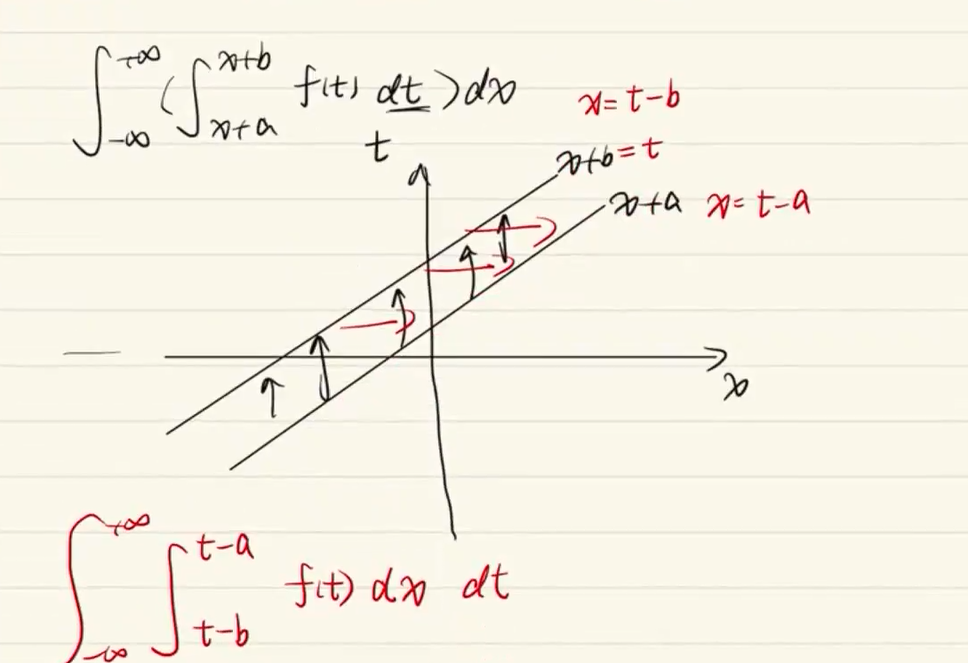 ∫_{-∞}^{+∞} (∫_{x+a}^{x+b} f(t) dt) dx
x = t-b
t
x+b = t
x+a x = t-a
x
∫_{-∞}^{+∞} ∫_{t-b}^{t-a} f(t) dx dt